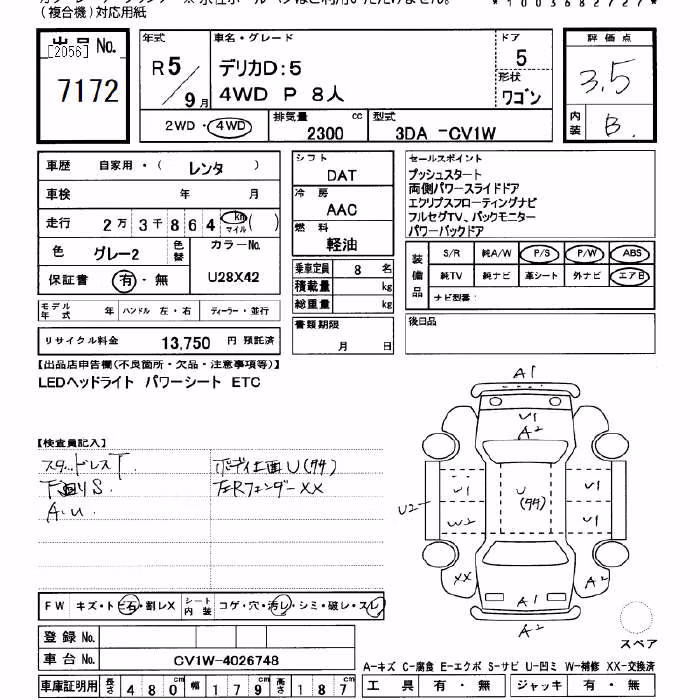 (複合機)対応用紙
*1003682727*
出品 No.
[2056]
7172
年式
R5/9月
車名・グレード
デリカD:5
4WD P 8人
ドア
5
形状
ワゴン
評価点
3.5
内装
B
2WD・4WD
排気量
2300 cc
型式
3DA -CV1W
車歴 自家用・( レンタ )
車検 年 月
走行 2万3千864 km マイル ( )
色 グレー2 色替
カラーNo.
U28X42
保証書 有・無
モデル年式 年 ハンドル 左・右 ディーラー・並行
リサイクル料金 13,750 円 預託済
シフト
DAT
冷房
AAC
燃料
軽油
乗車定員 8 名
積載量 kg
総重量 kg
書類期限
月 日
セールスポイント
プッシュスタート
両側パワースライドドア
エクリプスフローティングナビ
フルセグTV、バックモニター
パワーバックドア
装備品
S/R 純A/W P/S P/W ABS
純TV 純ナビ 革シート 外ナビ エアB
ナビ型番:
後日品
【出品店申告欄(不良箇所・欠品・注意事項等)】
LEDヘッドライト パワーシート ETC
【検査員記入】
スタッドレスT
下回りS
A.U
ボディ上面U(タナ)
左Rフェンダーxx
A1
U1
A2
U2
U1
W2
U
(タナ)
U1
U1
XX
A2
A1
A2
スペア
FW キズ・トビ石・割レX
シート内装 コゲ・穴・汚レ・シミ・破レ・スレ
登録 No.
車台 No. CV1W-4026748
車庫証明用 長さ 480 cm 幅 179 cm 高さ 187 cm
A-キズ C-腐食 E-エクボ S-サビ U-凹ミ W-補修 XX-交換済
工具 有・無 ジャッキ 有・無